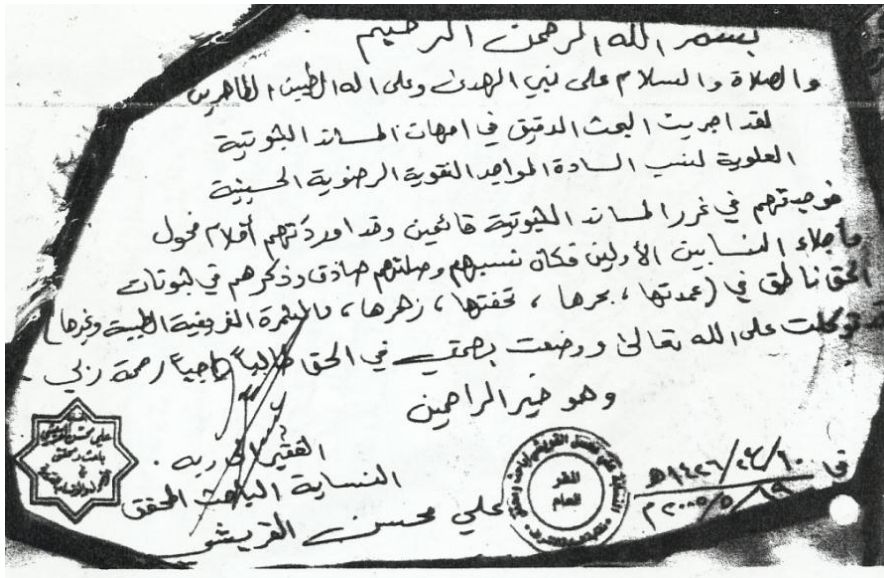 بسم الله الرحمن الرحيم
والصلاة والسلام على نبي الهدى وعلى اله الطيبين الطاهرين
لقد اجريت البحث الدقيق في امهات المساند الثبوتية
العلوية لنسب السادة المواجد النقوية الرضوية الحسينية
فوجدتهم في غرر المساند الثبوتية قائمين وقد اوردتهم أقلام فحول
وأجلاء النسابين الأولين فكان نسبهم وصلتهم صادق وذكرهم في ثبوتات
الحق ناطق في (عمدتها ، بحرها ، تحفتها ، زهرها ، والطيبة وغيرها)
توكلت على الله تعالى ووضعت بصمتي في الحق طالباً راجياً رحمة ربي
وهو خير الراحمين
الفقير الى ربه .
النسابة الباحث المحقق
علي محسن القريشي
في
١٤٢٦هـ
٢٠٠٥/٥/١٩م
علي محسن القريشي
باحث ومحقق
في